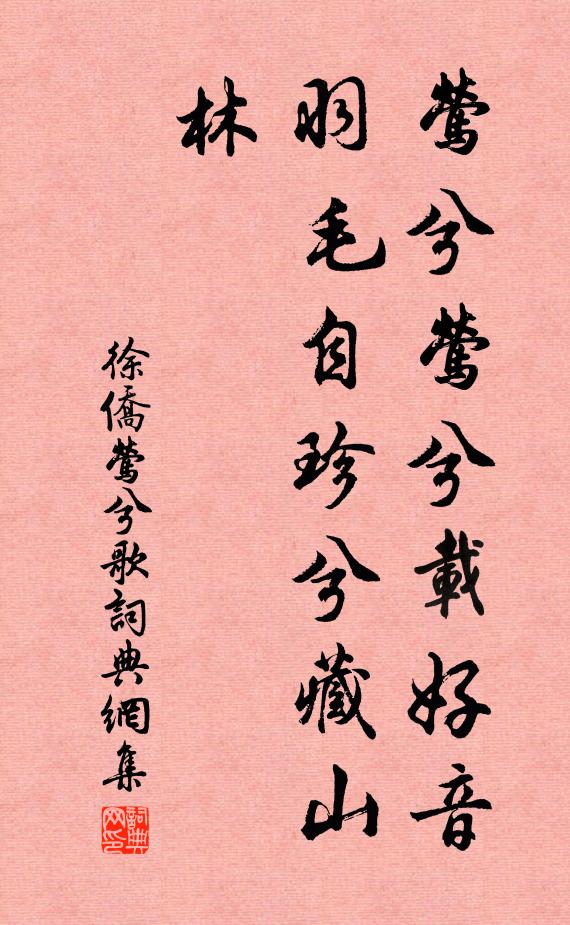 鶯兮鶯兮載好音
羽毛自珍兮藏山
林
徐僑鶯兮歌詞典網集
詞典网印